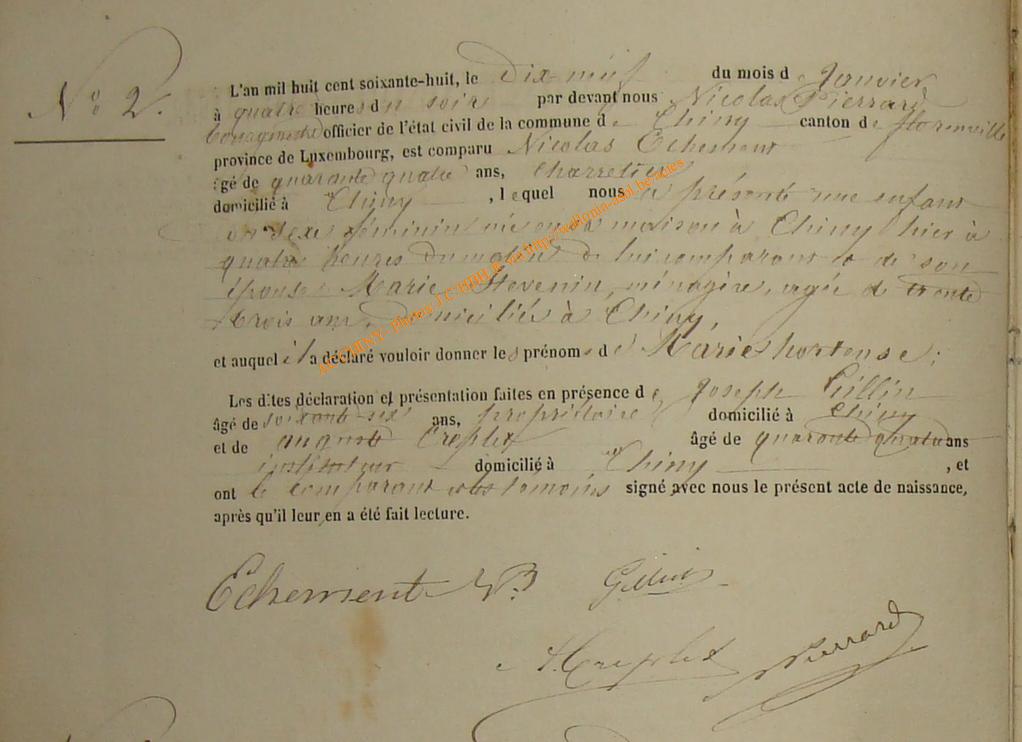 N° 2.
L'an mil huit cent soixante-huit, le Dix neuf du mois d e Janvier
à quatre heures du soir par devant nous Nicolas Pierrard
bourgmestre officier de l'état civil de la commune de Chiny canton de florenville
province de Luxembourg, est comparu Nicolas Echement
âgé de quarante quatre ans, charretier
domicilié à Chiny, lequel nous a présenté une enfant
du sexe féminin née en sa maison à Chiny hier à
quatre heures du matin de lui comparant et de son
épouse Marie Stevenin, ménagère, agée de trente
trois ans, domiciliés à Chiny,
et auquel il a déclaré vouloir donner les prénoms de Marie hortense;
Les dites déclaration et présentation faites en présence de Joseph Gillin
âgé de soixante-six ans, propriétaire domicilié à Chiny
et de auguste Creplet âgé de quarante quatre ans
instituteur domicilié à Chiny, et
ont le comparant et les temoins signé avec nous le présent acte de naissance,
après qu'il leur en a été fait lecture.
Echement Gillin
Creplet Pierrard